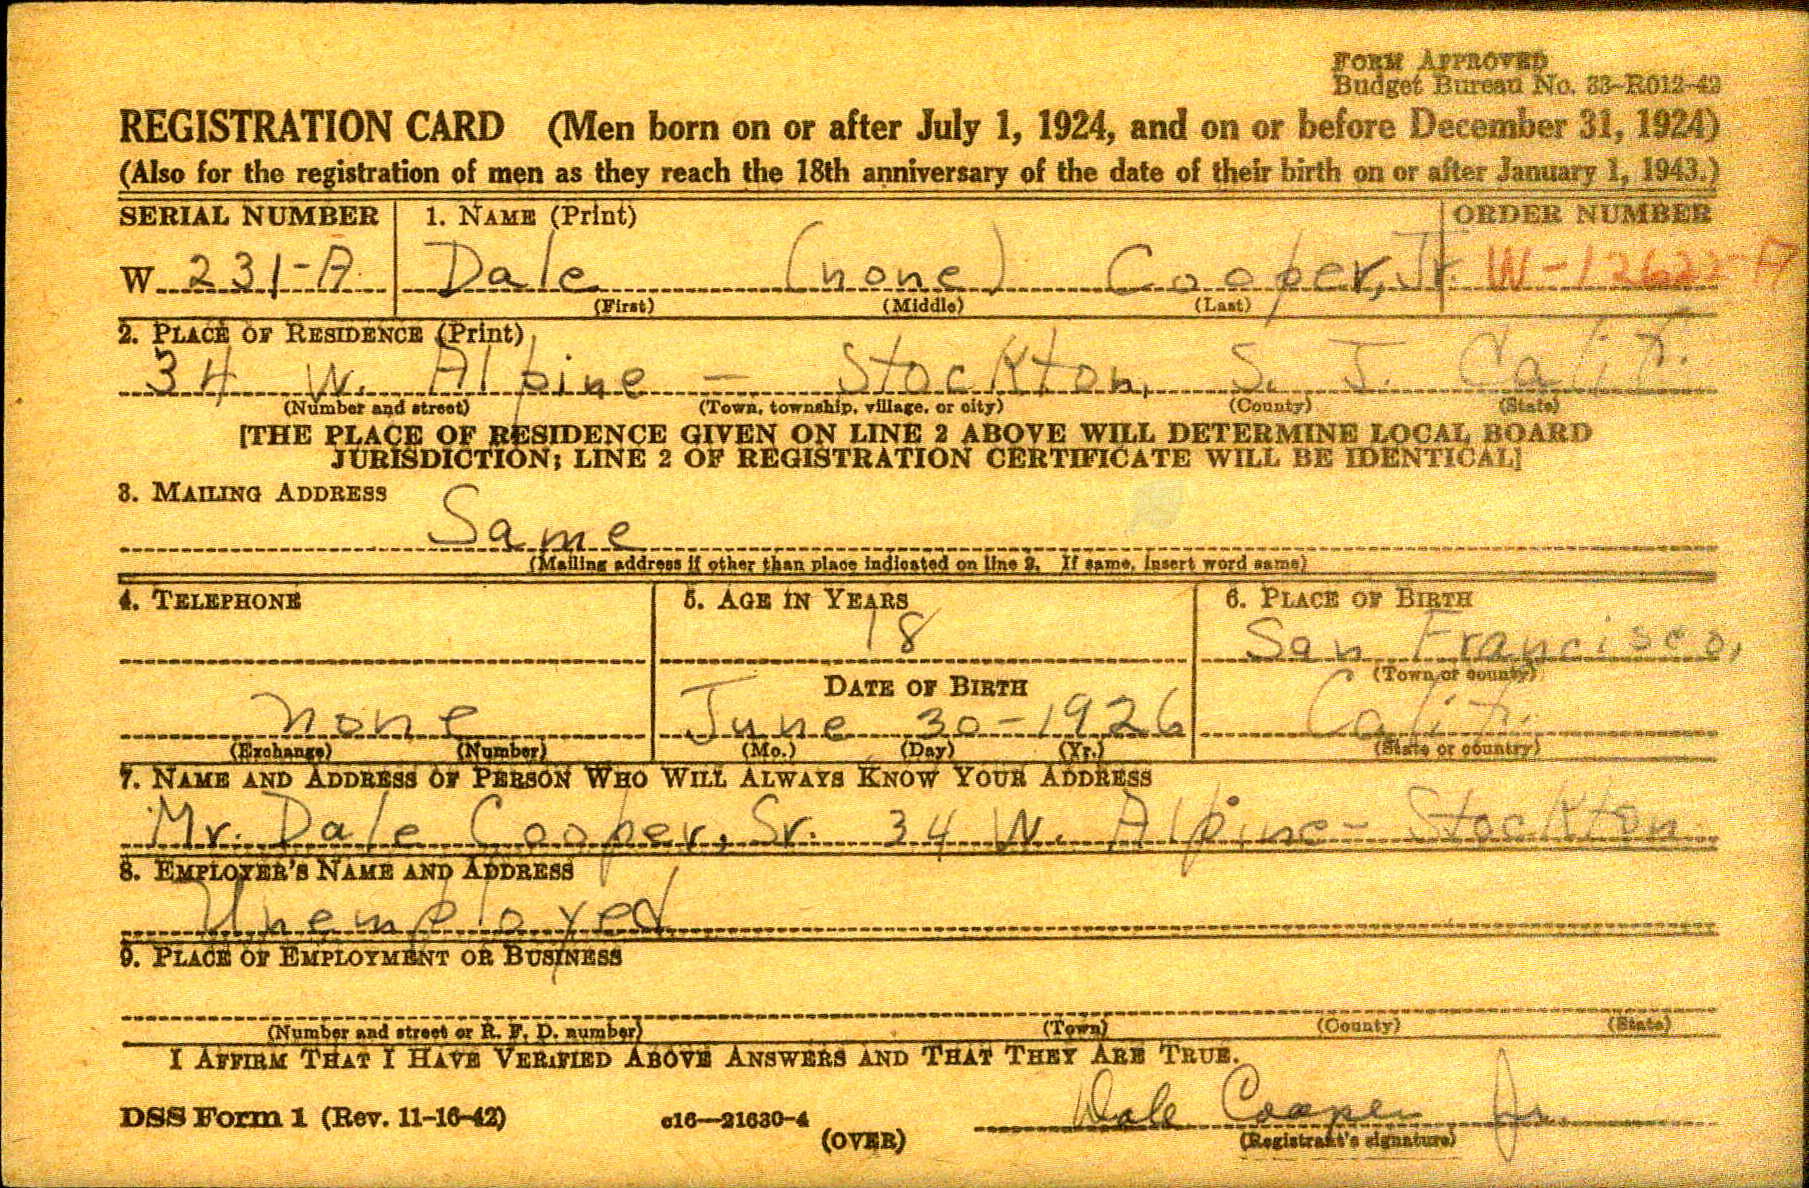 FORM APPROVED
Budget Bureau No. 33-R012-42
REGISTRATION CARD (Men born on or after July 1, 1924, and on or before December 31, 1924)
(Also for the registration of men as they reach the 18th anniversary of the date of their birth on or after January 1, 1943.)
SERIAL NUMBER 1. NAME (Print) ORDER NUMBER
W 231-A Dale (none) Cooper, Jr. W-12622-A
(First) (Middle) (Last)
2. PLACE OF RESIDENCE (Print)
34 W. Alpine - Stockton, S. J. Calif.
(Number and street) (Town, township, village, or city) (County) (State)
[THE PLACE OF RESIDENCE GIVEN ON LINE 2 ABOVE WILL DETERMINE LOCAL BOARD
JURISDICTION; LINE 2 OF REGISTRATION CERTIFICATE WILL BE IDENTICAL]
3. MAILING ADDRESS
Same
(Mailing address if other than place indicated on line 2. If same, insert word same)
4. TELEPHONE 5. AGE IN YEARS 6. PLACE OF BIRTH
18 San Francisco,
(Town or county)
DATE OF BIRTH
none June 30-1926 Calif.
(Exchange) (Number) (Mo.) (Day) (Yr.) (State or country)
7. NAME AND ADDRESS OF PERSON WHO WILL ALWAYS KNOW YOUR ADDRESS
Mr. Dale Cooper, Sr. 34 W. Alpine - Stockton
8. EMPLOYER'S NAME AND ADDRESS
Unemployed
9. PLACE OF EMPLOYMENT OR BUSINESS
(Number and street or R. F. D. number) (Town) (County) (State)
I AFFIRM THAT I HAVE VERIFIED ABOVE ANSWERS AND THAT THEY ARE TRUE.
Dale Cooper Jr.
DSS Form 1 (Rev. 11-16-42) c16—21630-4
(OVER) (Registrant's signature)